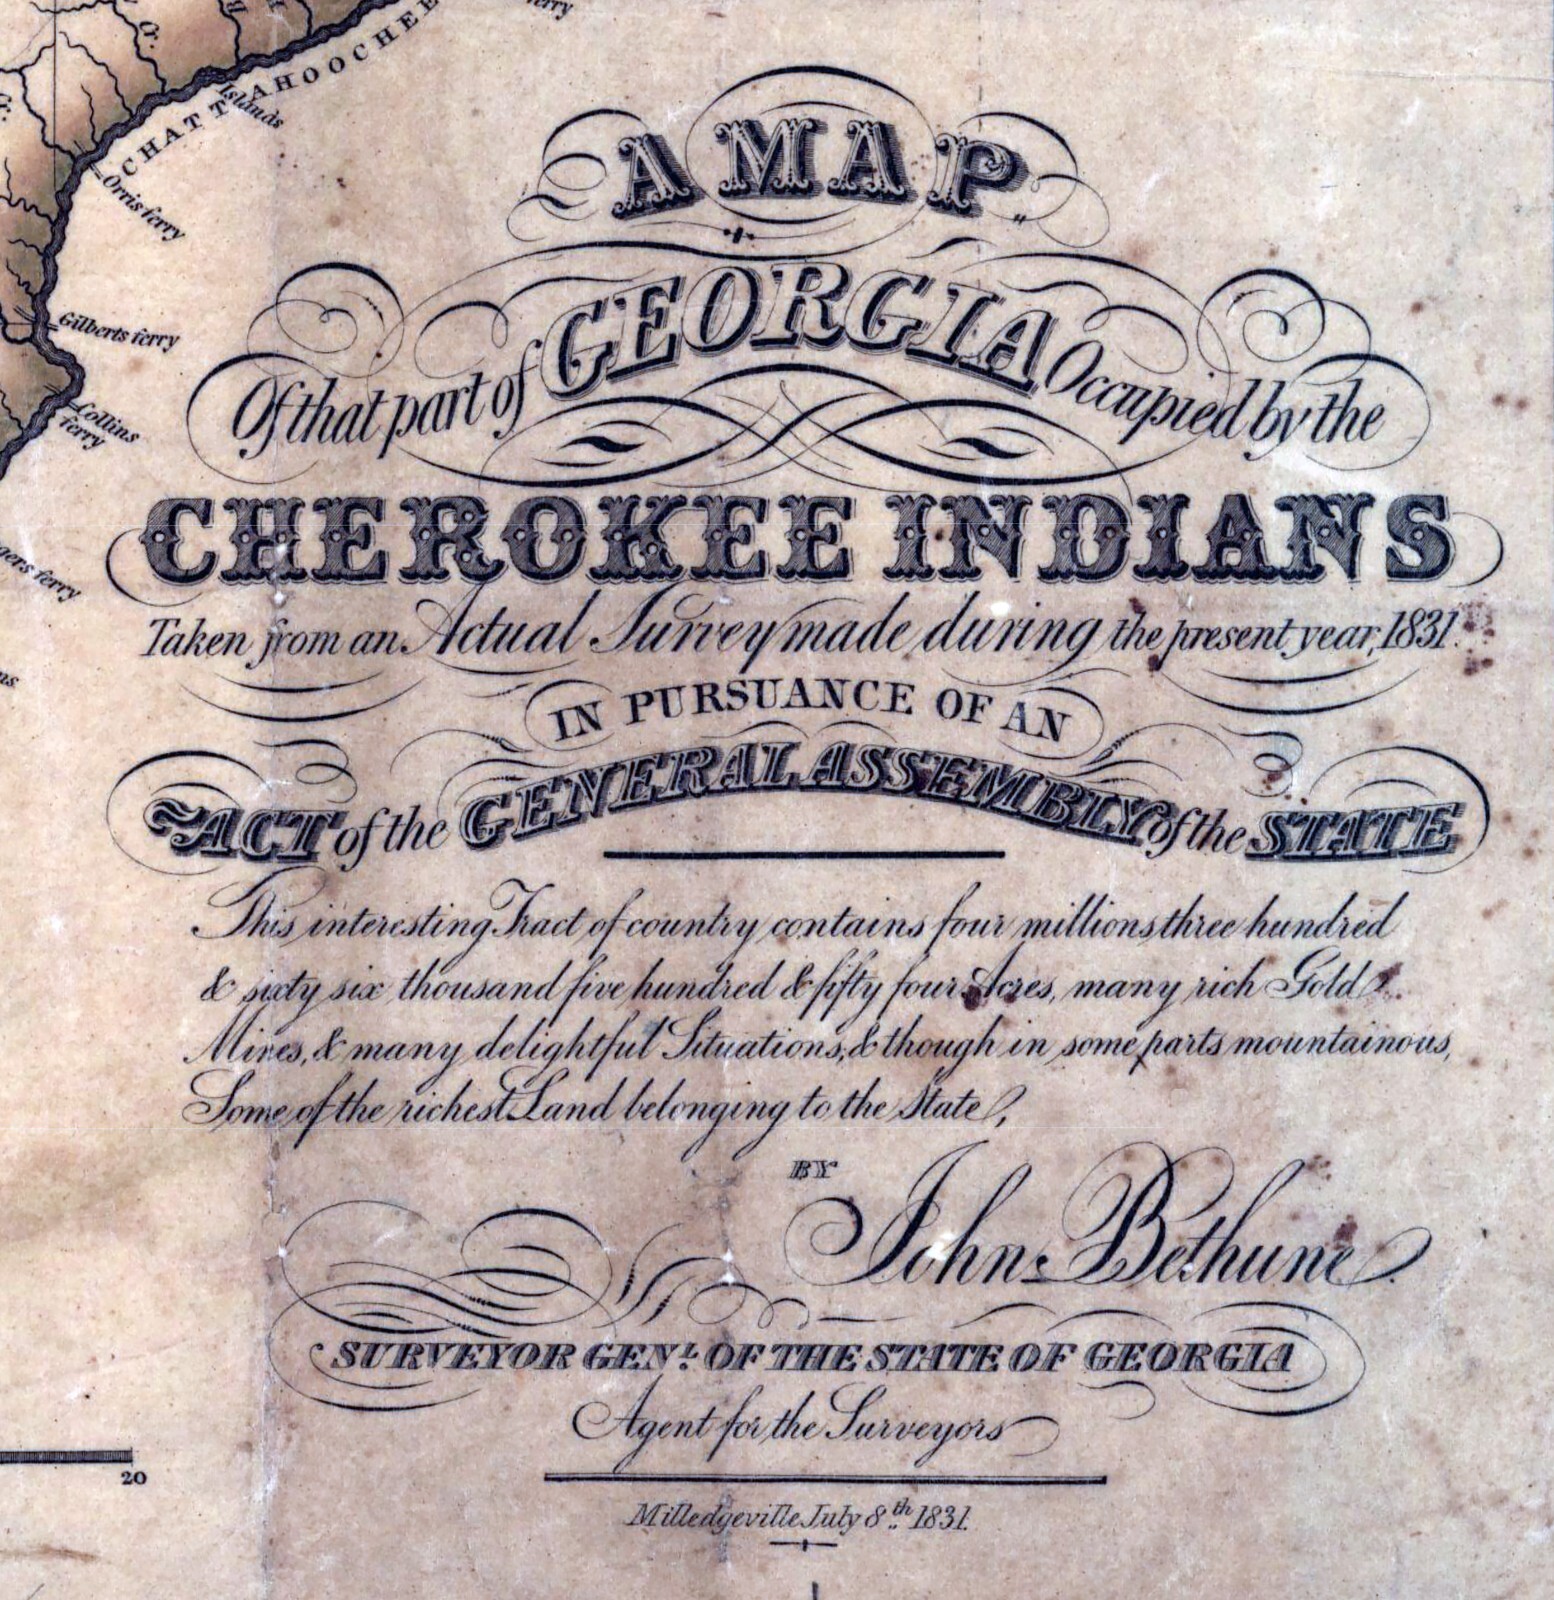 erry
Cr.
Cr.
CHATTAHOOCHEE
Islands
Orris ferry
Gilberts ferry
Collins
ferry
gers ferry
ns
A MAP
Of that part of GEORGIA Occupied by the
CHEROKEE INDIANS
Taken from an Actual Survey made during the present year, 1831.
IN PURSUANCE OF AN
ACT of the GENERAL ASSEMBLY of the STATE
This interesting Tract of country contains four millions three hundred
& sixty six thousand five hundred & fifty four Acres, many rich Gold
Mines, & many delightful Situations, & though in some parts mountainous,
Some of the richest Land belonging to the State,
BY
John Bethune.
SURVEYOR GENL. OF THE STATE OF GEORGIA
Agent for the Surveyors
20
Milledgeville July 8th 1831.